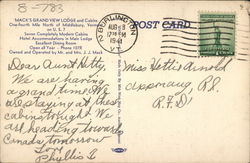 8-783
MACK'S GRAND VIEW LODGE and Cabins
One-fourth Mile North of Middlebury, Vermont
on U. S. 7
Completely Modern Cabins
Honest Accommodations in Main Lodge
Excellent Dining Room
Open all Year - Phone 107R
Owned and Operated by Mr. and Mrs. J. J. Mack
POST CARD
BURLINGTON
AUG 8
12 PM
1941
VT.
Dear Aunt Hetty,
We are having
a grand time. We
are staying at these
cabins tonight. We
are heading toward
Canada tomorrow
Love
Phyllis
Miss Hettie Arnold
R.F.D.